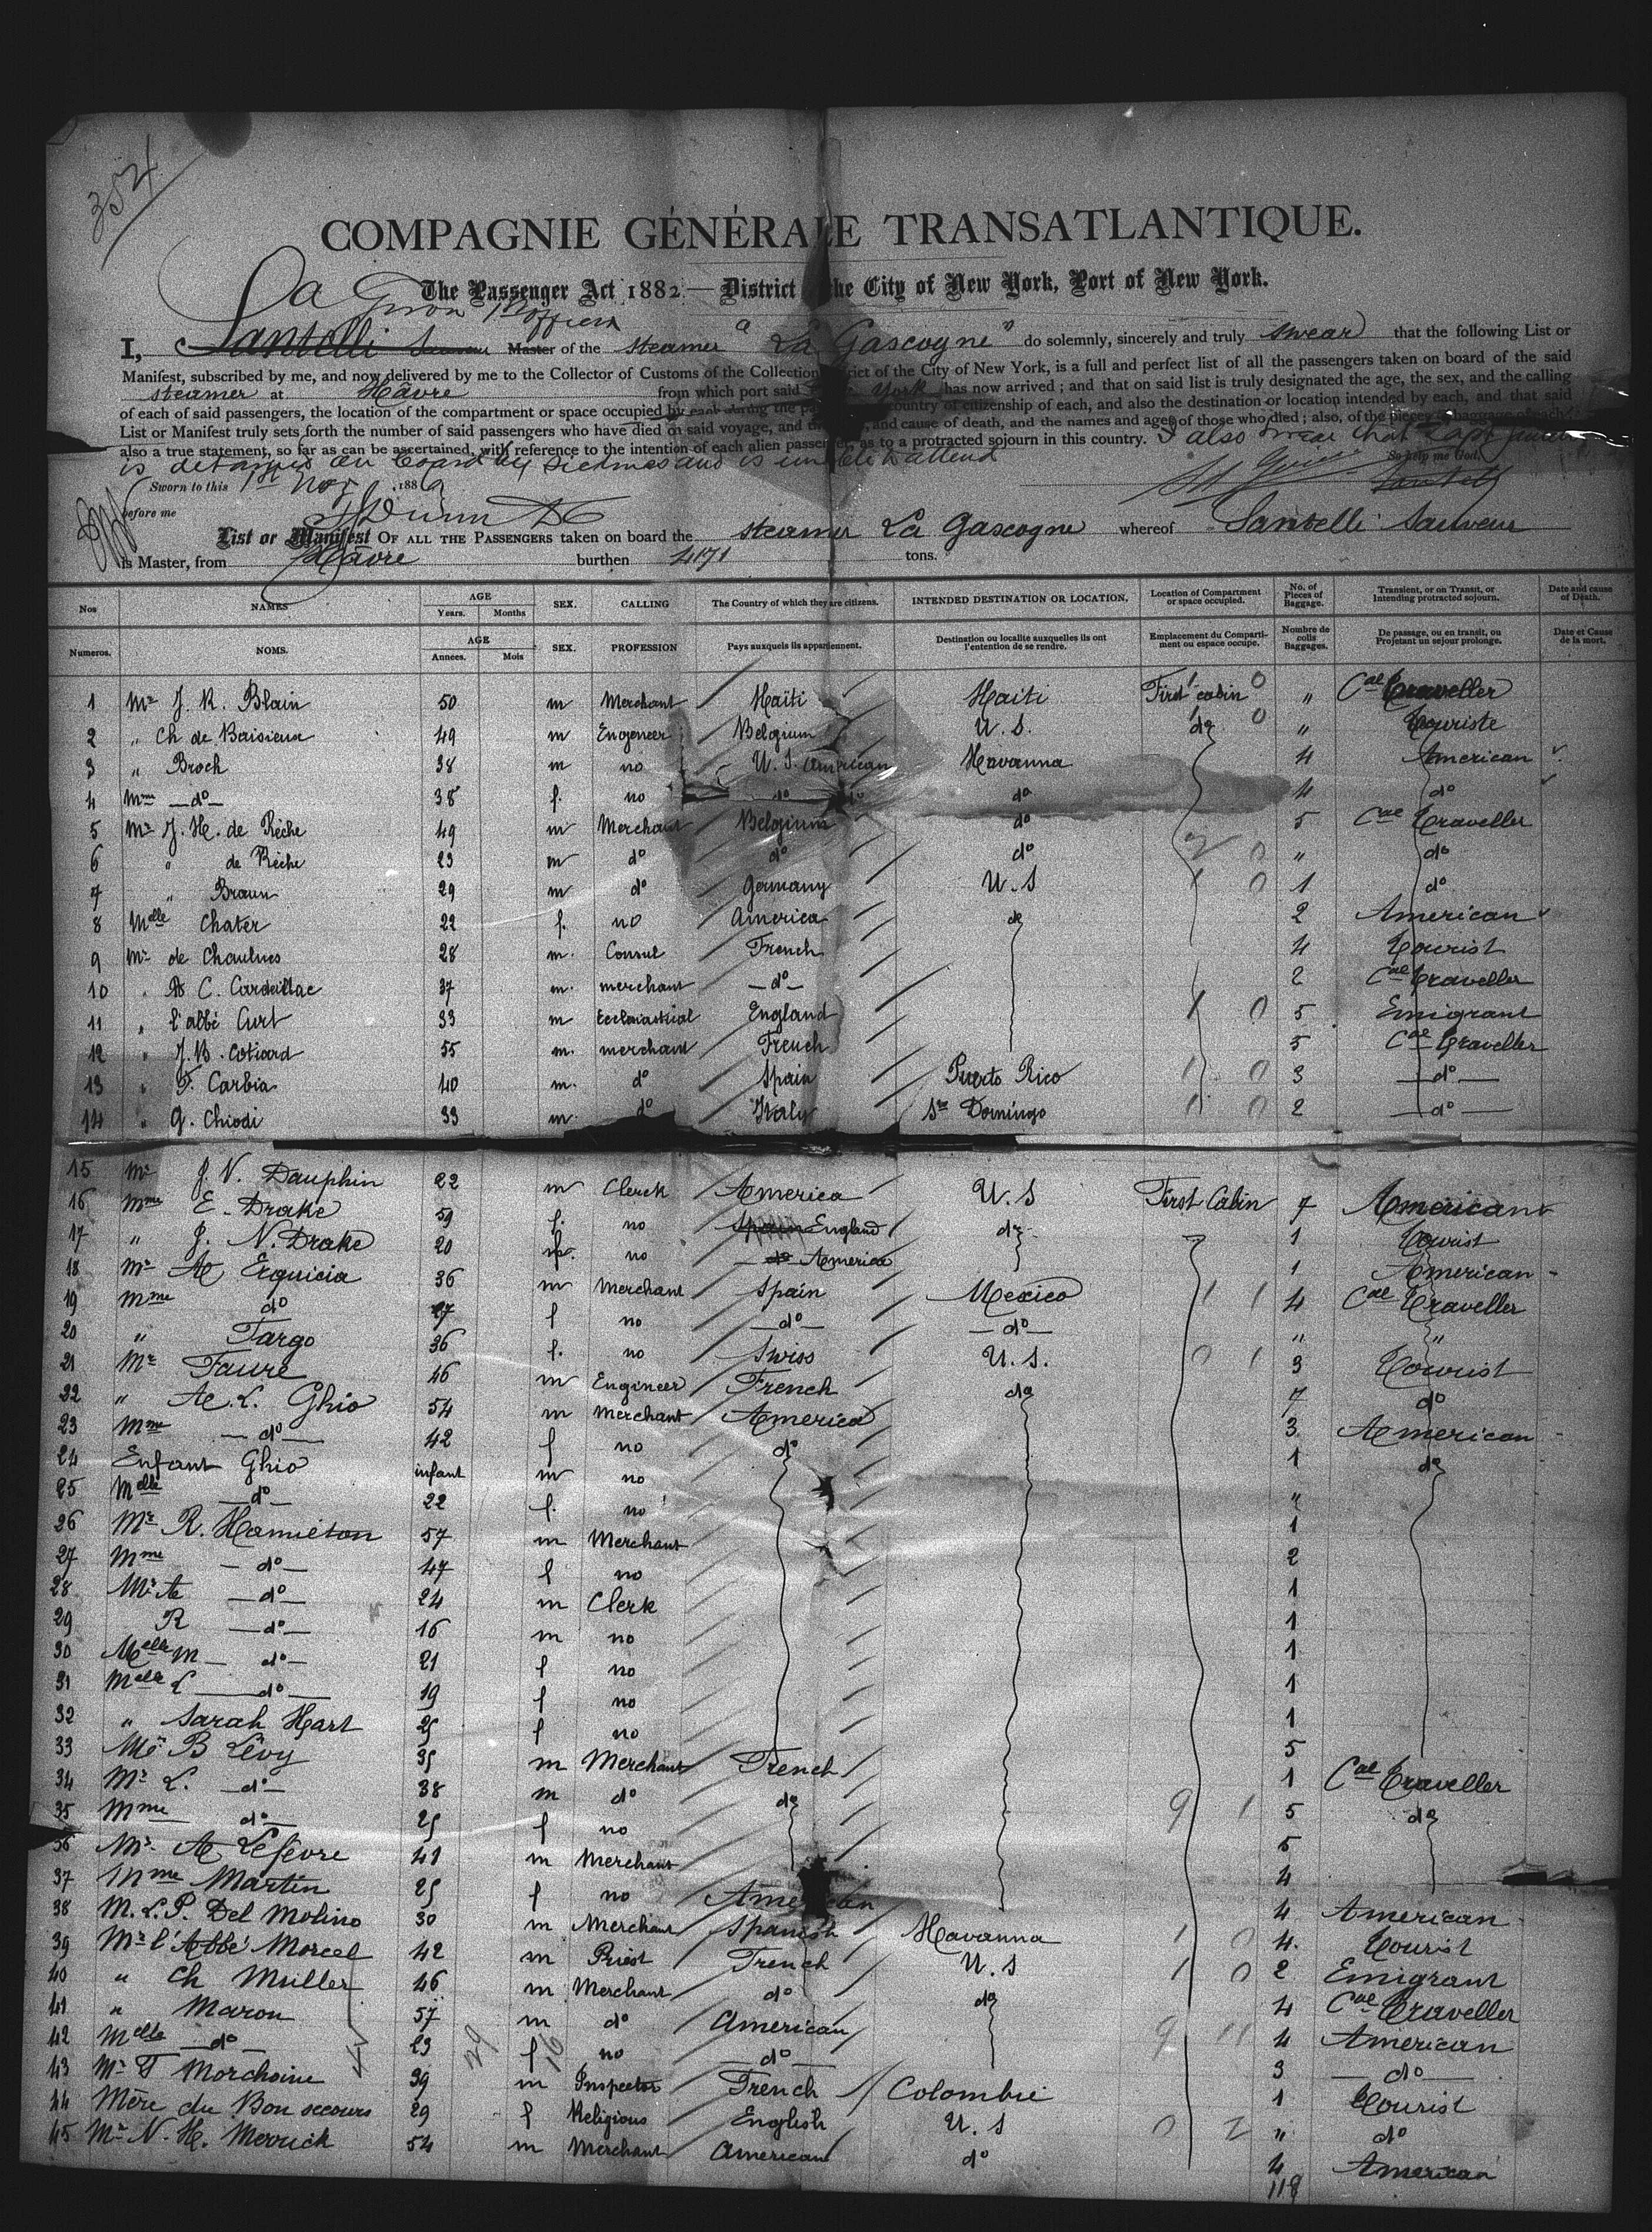 354
COMPAGNIE GÉNÉRALE TRANSATLANTIQUE.
The Passenger Act 1882 — District the City of New York, Port of New York.
1st officer
I, Santelli Sauveur Master of the steamer "La Gascogne" do solemnly, sincerely and truly swear that the following List or
Manifest, subscribed by me, and now delivered by me to the Collector of Customs of the Collection District of the City of New York, is a full and perfect list of all the passengers taken on board of the said
steamer at Hâvre from which port said York has now arrived; and that on said list is truly designated the age, the sex, and the calling
of each of said passengers, the location of the compartment or space occupied by each during the country of citizenship of each, and also the destination or location intended by each, and that said
List or Manifest truly sets forth the number of said passengers who have died on said voyage, and and cause of death, and the names and ages of those who died; also, of the pieces of baggage of each
also a true statement, so far as can be ascertained, with reference to the intention of each alien passenger, as to a protracted sojourn in this country. I also swear that Capt
is detained on board by sickness and is unable to attend So help me God.
Sworn to this 1st Nov 1886
before me
List or Manifest OF ALL THE PASSENGERS taken on board the steamer La Gascogne whereof Santelli Sauveur
is Master, from Hâvre burthen 4171 tons.
Nos NAMES AGE Years. Months SEX. CALLING The Country of which they are citizens. INTENDED DESTINATION OR LOCATION. Location of Compartment or space occupied. No. of Pieces of Baggage. Transient, or on Transit, or Intending protracted sojourn. Date and cause of Death.
Numeros. NOMS. AGE Années. Mois SEX. PROFESSION Pays auxquels ils appartiennent. Destination ou localite auxquelles ils ont l'entention de se rendre. Emplacement du Comparti-ment ou espace occupe. Nombre de colis Baggages. De passage, ou en transit, ou Projetant un sejour prolonge. Date et Cause de la mort.
1 Mr J. R. Blain 50 m Merchant Haïti Haiti First cabin 0 " Cal Traveller
2 " Ch de Baisieux 49 m Engeneer Belgium U. S. do 0 " Touriste
3 " Broch 38 m no U. S. American Havanna 4 American
4 Mme —do— 38 f. no do do 4 do
5 Mr J. H. de Rèche 49 m Merchant Belgium do 5 Cal Traveller
6 " de Rèche 23 m do do do 2 0 " do
7 " Braun 29 m do Germany U. S 1 0 1 do
8 Melle Chater 22 f. no America do 2 American
9 Mr de Chaulnes 28 m. Consul French 4 Tourist
10 " C. Cardaillac 37 m. merchant —do— 2 Cal Traveller
11 " l'abbé Curt 33 m Ecclesiastical England 1 0 5 Emigrant
12 " J. B. Cotiard 55 m. merchant French 5 Cal Traveller
13 " F. Carbia 40 m. do Spain Puerto Rico 1 0 3 —do—
14 " G. Chiodi 33 m do Italy St Domingo 1 0 2 —do—
15 Mr J. V. Dauphin 22 m Clerck America U. S First Cabin 7 American
16 Mme E. Drake 59 f. no Spain England do 1 Tourist
17 " J. N. Drake 20 f. no do America 1 American
18 Mr A Erquicia 36 m Merchant Spain Mexico 1 1 4 Cal Traveller
19 Mme do 27 f no —do— —do— " "
20 " Targo 36 f. no Swiss U. S. 0 1 3 Tourist
21 Mr Faure 46 m Engineer French do 7 do
22 " A. L. Ghio 54 m Merchant America 3 American
23 Mme —do— 42 f no do 1 do
24 Enfant Ghio infant m no "
25 Melle —do— 22 f. no 1
26 Mr R. Hamilton 57 m Merchant 2
27 Mme —do— 47 f no 1
28 Mr A —do— 24 m Clerk 1
29 R —do— 16 m no 1
30 Melle M —do— 21 f no 1
31 Melle L —do— 19 f no 1
32 " Sarah Hart 25 f no 5
33 Mr B Lévy 35 m Merchant French 1 Cal Traveller
34 Mr L. —do— 38 m do do 9 1 5 do
35 Mme do 25 f no 5
36 Mr A Lefèvre 41 m Merchant 4
37 Mme Martin 25 f no American 4 American
38 M. L. P. Del Molino 30 m Merchant Spanish Havanna 1 0 4. Tourist
39 Mr l'Abbé Morcel 42 m Priest French U. S 1 0 2 Emigrant
40 " Ch Müller 46 m Merchant do do 4 Cal Traveller
41 " Maron 57 m do American 9 11 4 American
42 Melle —do— 23 f no —do— 3 —do—
43 Mr F Morchoine 39 m Inspector French Colombie 1 Tourist
44 Mère du Bon secours 29 f Religious English U. S 0 2 " do
45 Mr N. H. Merrick 54 m Merchant American do 4 American
29 16
118